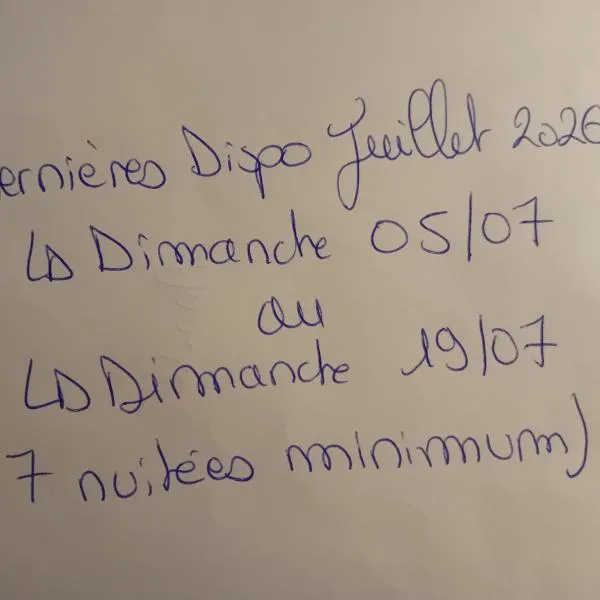 ernières Dispo Juillet 2026
↳ Dimanche 05/07
au
↳ Dimanche 19/07
7 nuitées minimum)